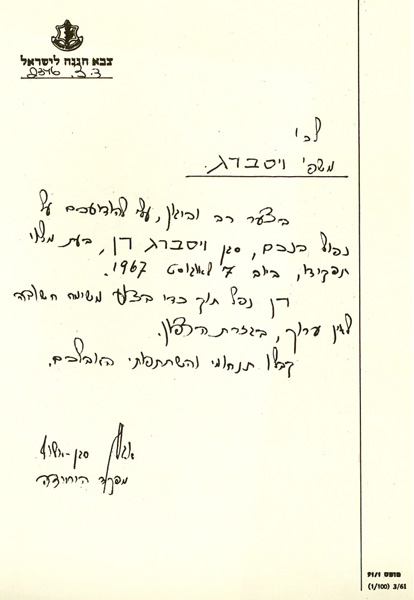 צבא הגנה לישראל
ד.צ. 2346
לכ'
משפ' ויסברג.
בצער רב וביגון, עלי להודיעכם על
נפול בנכם, סגן ויסברג דן, בעת מלוי
תפקידו, ביום 7 לאוגוסט 1967.
דן נפל תוך כדי בצוע משימה חשובה
לאין ערוך, בגזרת הצפון.
קבלו תנחומי והשתתפותי באבלכם.
סגן-אלוף
מפקד היחידה
טופס 91/1
(1/100) 3/61